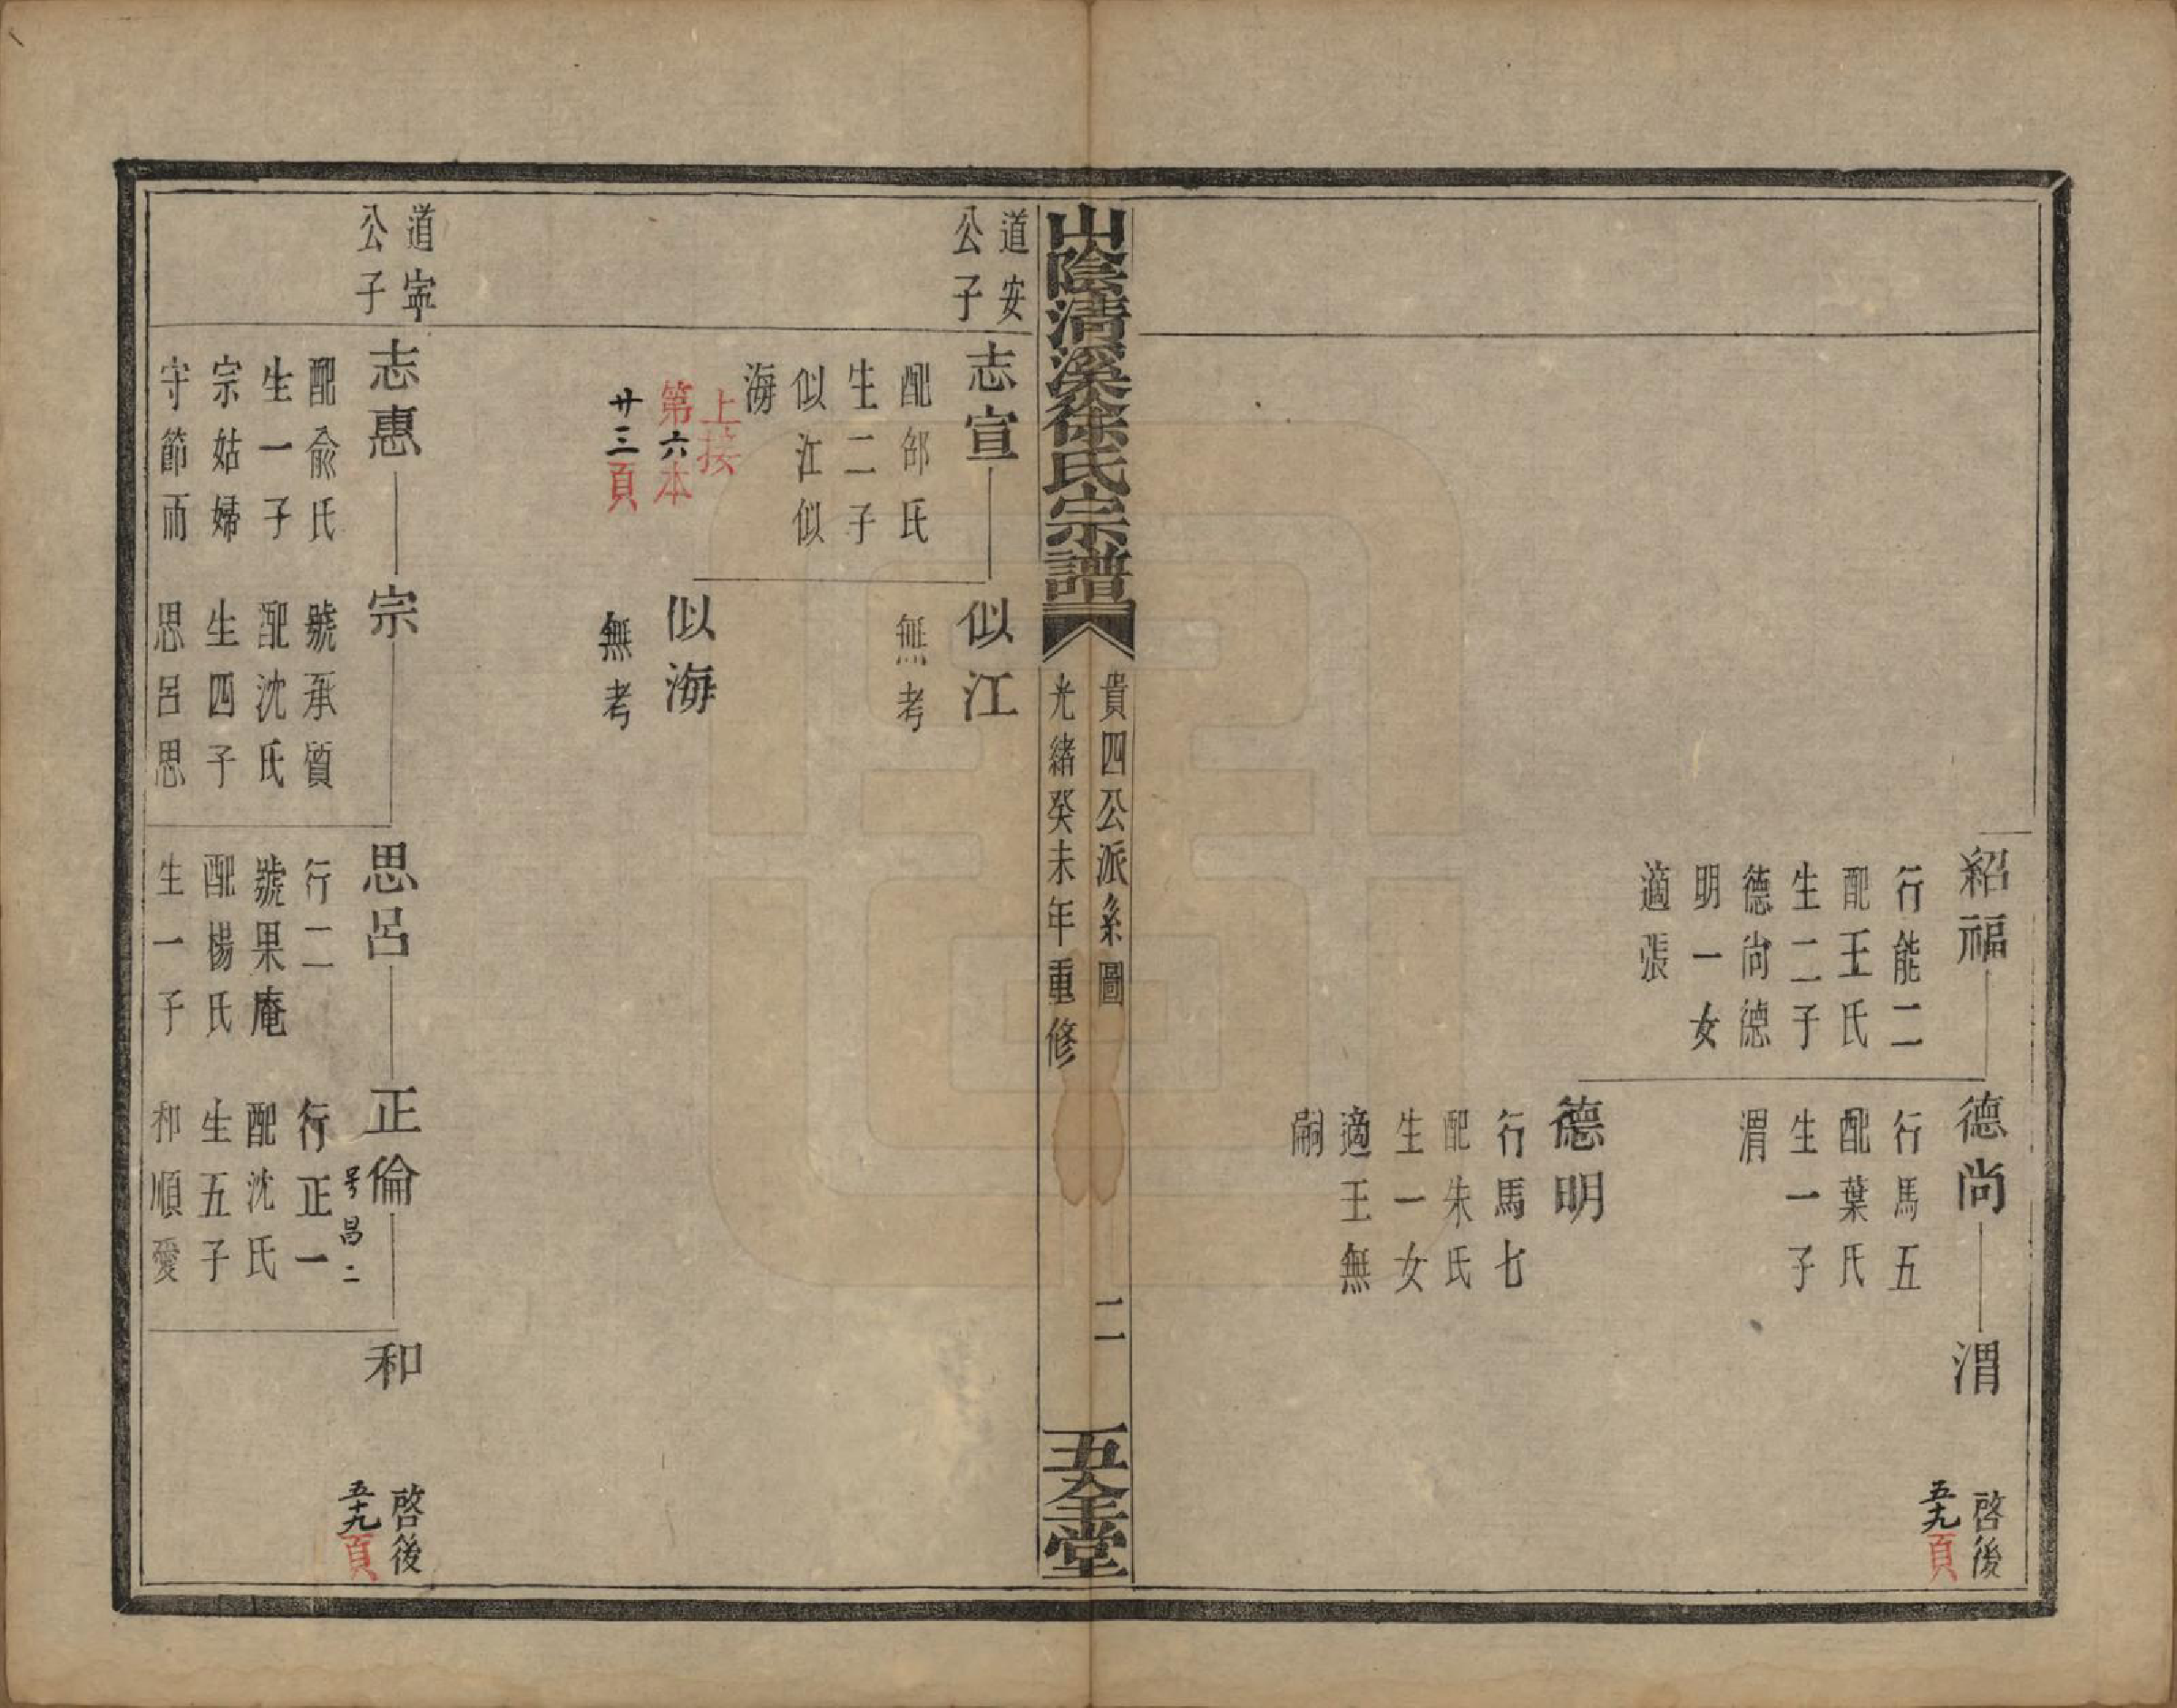 紹福
行能二
配王氏
生二子
德尚德
明一女
適張
德尚
行馬五
配葉氏
生一子
渭
渭
啓後
五十九頁
德明
行馬七
配朱氏
生一女
適王無
嗣
山陰清溪徐氏宗譜
貴四公派系圖
光緒癸未年重修
二
五全堂
道安
公子
志宣
配邵氏
生二子
似江似
海
上接
第六本
廿三頁
似江
無考
似海
無考
道寧
公子
志惠
配俞氏
生一子
宗姑婦
守節而
宗
號承質
配沈氏
生四子
思呂思
思呂
行二
號果庵
配楊氏
生一子
正倫
号昌二
行正一
配沈氏
生五子
和順愛
和
啓後
五十九頁